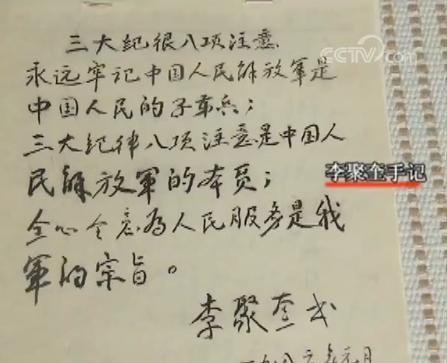 CCTV.com
三大纪律八项注意
永远牢记中国人民解放軍是
中国人民的子弟兵；
三大纪律八项注意是中国人
民解放軍的本质；
全心全意为人民服务是我
軍的宗旨。
李聚奎书
年元月
李聚奎手记